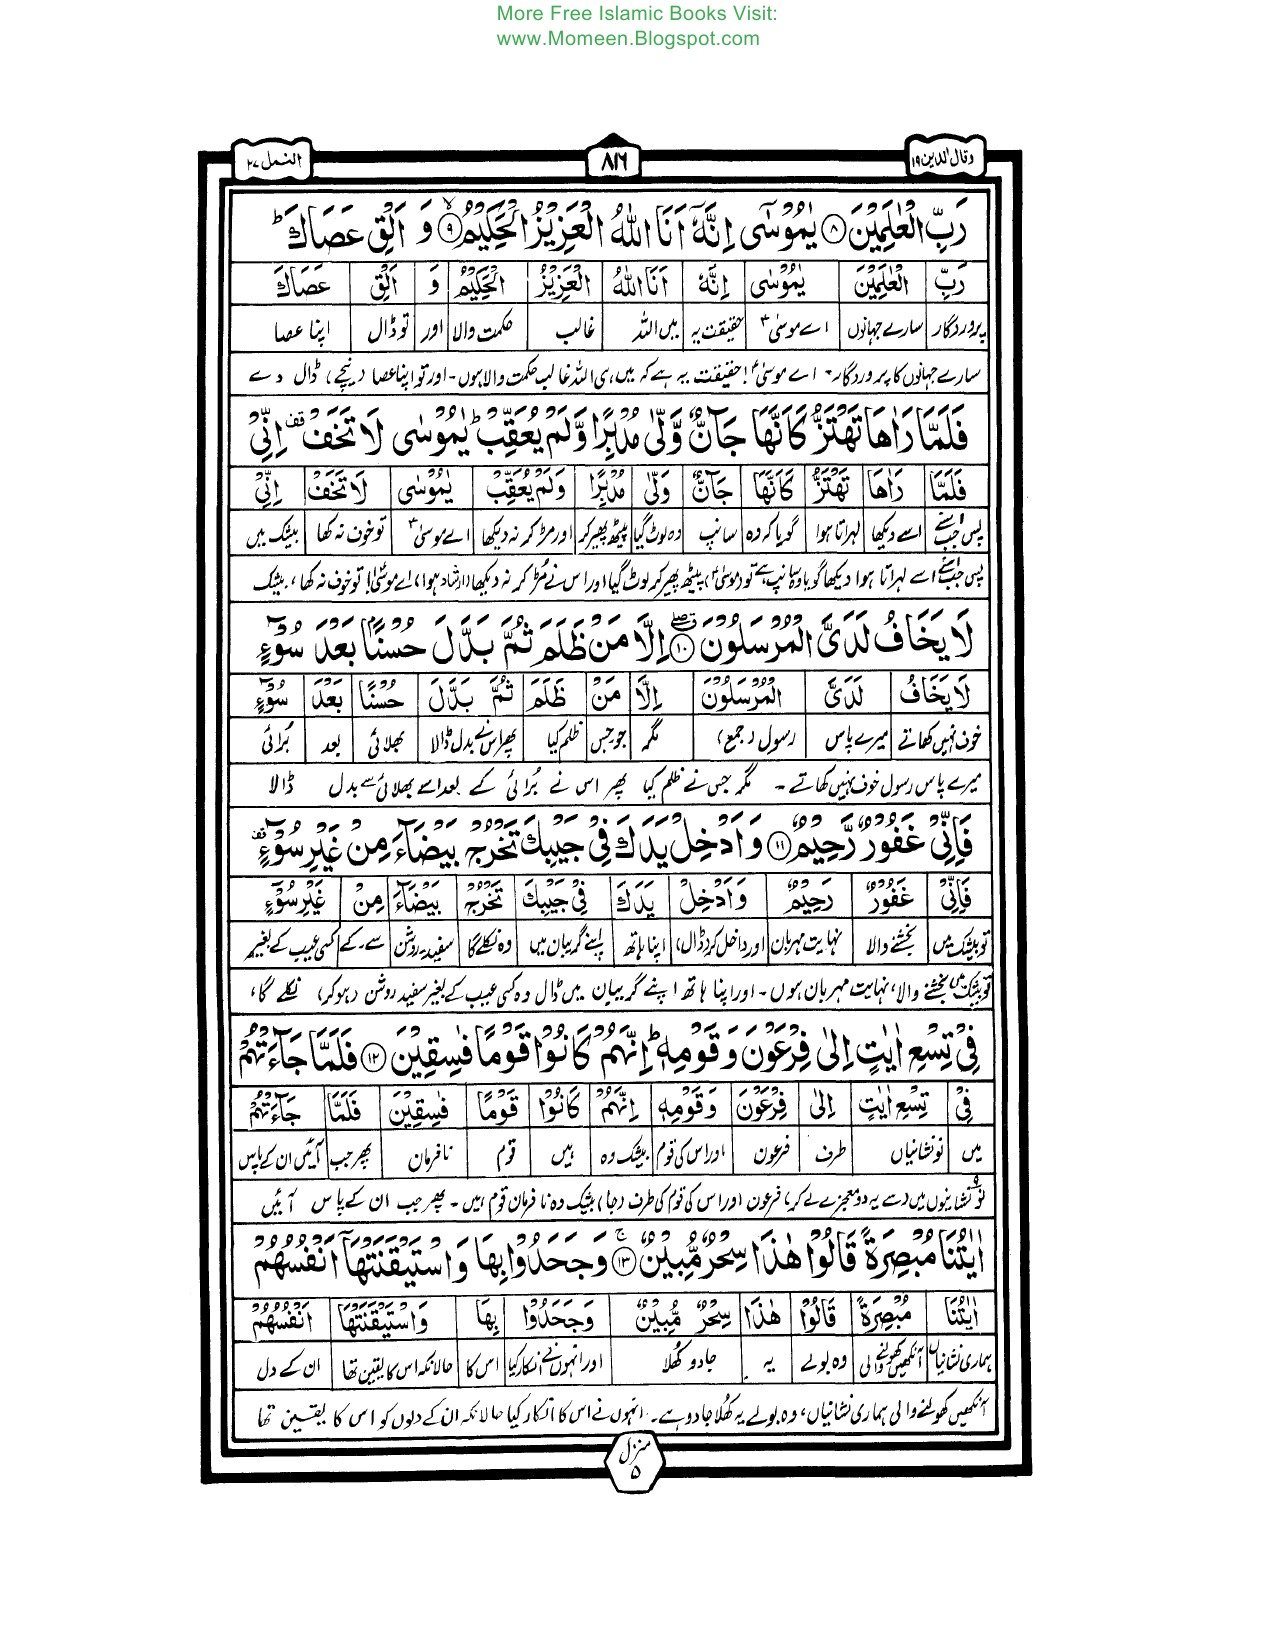 More Free Islamic Books Visit:
www.Momeen.Blogspot.com
وقال الذین ۱۹
۸۱۶
النمل ۲۷
رَبِّ الْعٰلَمِیْنَ ﴿۸﴾ یٰمُوْسٰۤی اِنَّهٗۤ اَنَا اللّٰهُ الْعَزِیْزُ الْحَكِیْمُ ﴿۹﴾ وَ اَلْقِ عَصَاكَ ؕ
رَبِّ الْعٰلَمِیْنَ یٰمُوْسٰی اِنَّهٗ اَنَا اللّٰهُ الْعَزِیْزُ الْحَكِیْمُ وَ اَلْقِ عَصَاكَ
پروردگار سارے جہانوں اے موسیٰؑ حقیقت یہ میں اللہ غالب حکمت والا اور تو ڈال اپنا عصا
سارے جہانوں کا پروردگار۔ اے موسیٰؑ! حقیقت یہ ہے کہ میں ہی اللہ غالب حکمت والا ہوں۔ اور تو اپنا عصا (نیچے) ڈال دے
فَلَمَّا رَاٰهَا تَهْتَزُّ كَاَنَّهَا جَآنٌّ وَّلّٰی مُدْبِرًا وَّلَمْ یُعَقِّبْ ؕ یٰمُوْسٰی لَا تَخَفْ ۫ اِنِّیْ
فَلَمَّا رَاٰهَا تَهْتَزُّ كَاَنَّهَا جَآنٌّ وَلّٰی مُدْبِرًا وَلَمْ یُعَقِّبْ یٰمُوْسٰی لَا تَخَفْ اِنِّیْ
پس جب اسنے اسے دیکھا لہراتا ہوا گویا کہ وہ سانپ وہ لوٹ گیا پیٹھ پھیر کر اور مڑ کر نہ دیکھا اے موسیٰؑ تو خوف نہ کھا بیشک میں
پس جب اسنے اسے لہراتا ہوا دیکھا گویا وہ سانپ ہے تو (موسیٰؑ) پیٹھ پھیر کر لوٹ گیا اور اس نے مُڑ کر نہ دیکھا (ارشاد ہوا) اے موسیٰؑ! تو خوف نہ کھا، بیشک
لَا یَخَافُ لَدَیَّ الْمُرْسَلُوْنَ ﴿۱۰﴾ اِلَّا مَنْ ظَلَمَ ثُمَّ بَدَّلَ حُسْنًۢا بَعْدَ سُوْٓءٍ
لَا یَخَافُ لَدَیَّ الْمُرْسَلُوْنَ اِلَّا مَنْ ظَلَمَ ثُمَّ بَدَّلَ حُسْنًۢا بَعْدَ سُوْٓءٍ
خوف نہیں کھاتے میرے پاس رسول (جمع) مگر جو جس ظلم کیا پھر اس نے بدل ڈالا بھلائی بعد بُرائی
میرے پاس رسول خوف نہیں کھاتے۔ مگر جس نے ظلم کیا پھر اس نے بُرائی کے بعد اسے بھلائی سے بدل ڈالا
فَاِنِّیْ غَفُوْرٌ رَّحِیْمٌ ﴿۱۱﴾ وَ اَدْخِلْ یَدَكَ فِیْ جَیْبِكَ تَخْرُجْ بَیْضَآءَ مِنْ غَیْرِ سُوْٓءٍ ۫
فَاِنِّیْ غَفُوْرٌ رَحِیْمٌ وَ اَدْخِلْ یَدَكَ فِیْ جَیْبِكَ تَخْرُجْ بَیْضَآءَ مِنْ غَیْرِ سُوْٓءٍ
تو بیشک میں بخشنے والا نہایت مہربان اور داخل کر (ڈال) اپنا ہاتھ اپنے گریبان میں وہ نکلے گا سفید۔ روشن سے۔ کے کسی عیب کے بغیر
تو بیشک میں بخشنے والا، نہایت مہربان ہوں۔ اور اپنا ہاتھ اپنے گریبان میں ڈال وہ کسی عیب کے بغیر سفید روشن (ہو کر) نکلے گا،
فِیْ تِسْعِ اٰیٰتٍ اِلٰی فِرْعَوْنَ وَ قَوْمِهٖ ؕ اِنَّهُمْ كَانُوْا قَوْمًا فٰسِقِیْنَ ﴿۱۲﴾ فَلَمَّا جَآءَتْهُمْ
فِیْ تِسْعِ اٰیٰتٍ اِلٰی فِرْعَوْنَ وَ قَوْمِهٖ اِنَّهُمْ كَانُوْا قَوْمًا فٰسِقِیْنَ فَلَمَّا جَآءَتْهُمْ
میں نو نشانیاں طرف فرعون اور اس کی قوم بیشک وہ ہیں قوم نافرمان پھر جب آئیں ان کے پاس
نو نشانیوں میں سے یہ دو معجزے لے کر فرعون اور اس کی قوم کی طرف (جا) بیشک وہ نافرمان قوم ہیں۔ پھر جب ان کے پاس آئیں
اٰیٰتُنَا مُبْصِرَةً قَالُوْا هٰذَا سِحْرٌ مُّبِیْنٌ ﴿۱۳﴾ ۚ وَ جَحَدُوْا بِهَا وَ اسْتَیْقَنَتْهَاۤ اَنْفُسُهُمْ
اٰیٰتُنَا مُبْصِرَةً قَالُوْا هٰذَا سِحْرٌ مُّبِیْنٌ وَ جَحَدُوْا بِهَا وَ اسْتَیْقَنَتْهَا اَنْفُسُهُمْ
ہماری نشانیاں آنکھیں کھولنے والی وہ بولے یہ جادو کُھلا اور انہوں نے انکار کیا اس کا حالانکہ اس کا یقین تھا ان کے دل
آنکھیں کھولنے والی ہماری نشانیاں، وہ بولے یہ کُھلا جادو ہے۔ انہوں نے اس کا انکار کیا حالانکہ ان کے دلوں کو اس کا یقین تھا
منزل
۵